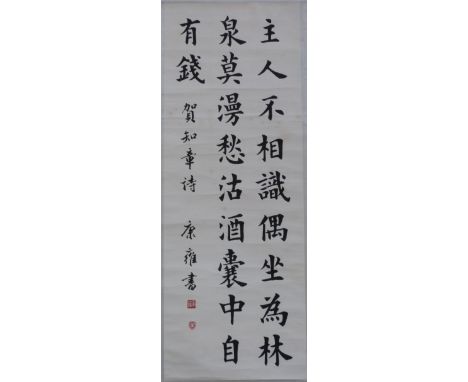 主人不相識偶坐為林
泉莫漫愁沽酒囊中自
有錢
賀知章詩 康雍書